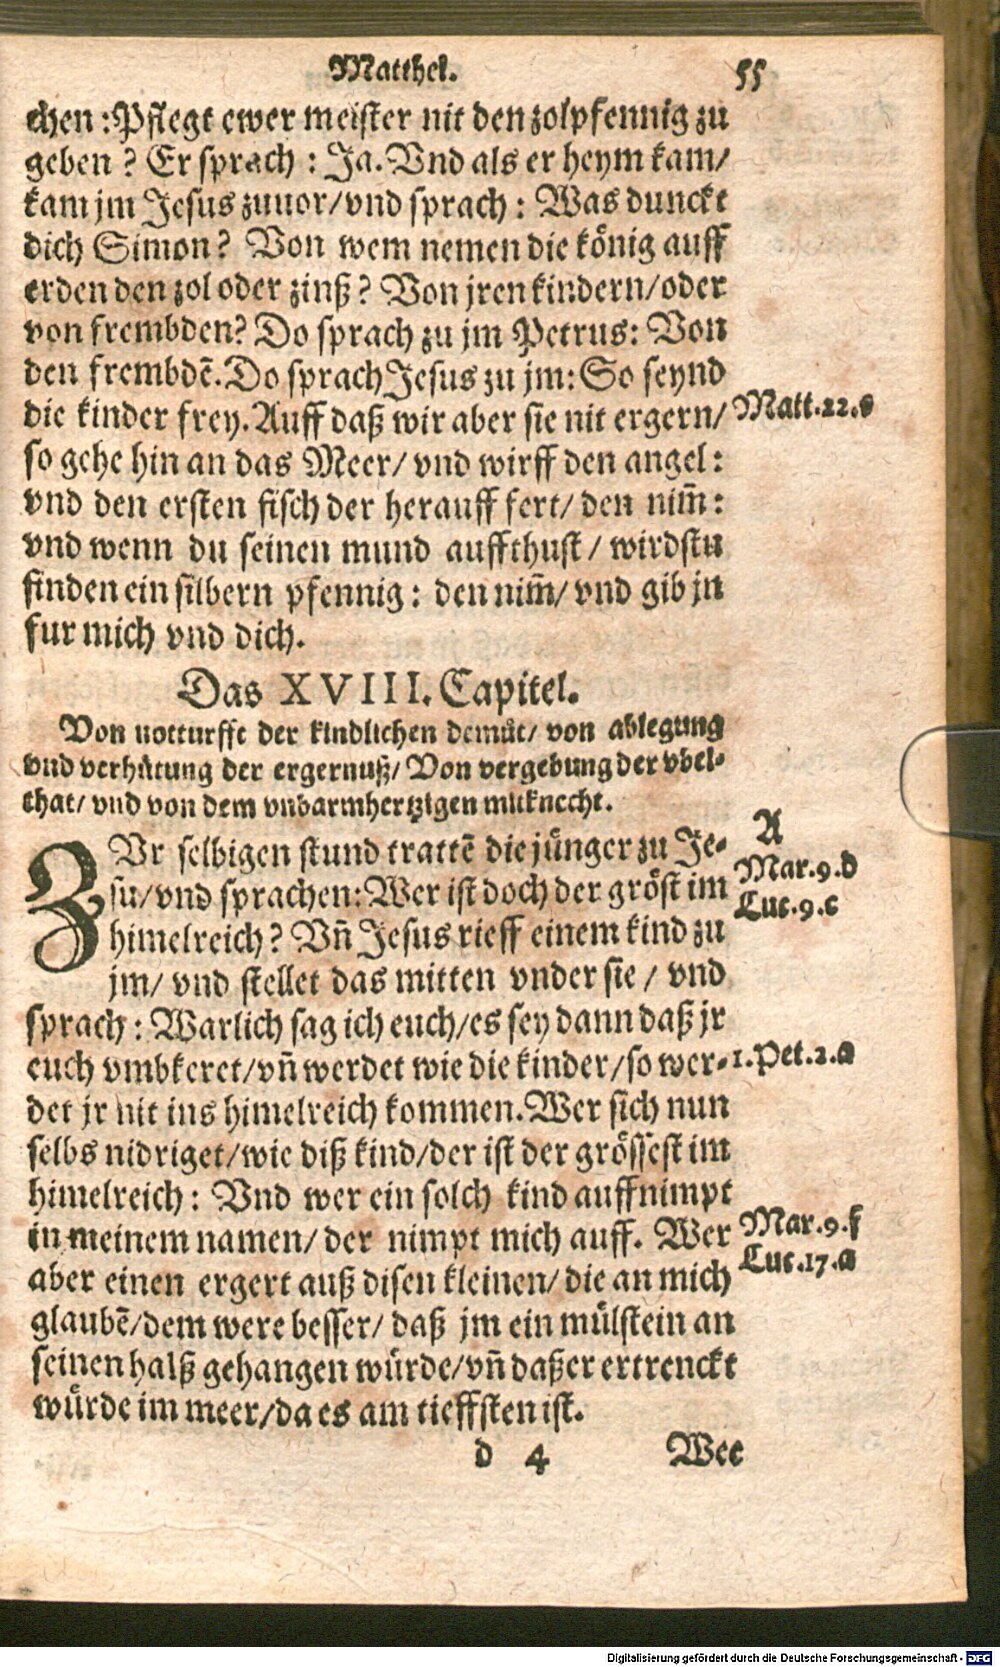 Matthei. 55
chen: Pflegt ewer meister nit den zolpfennig zu
geben? Er sprach: Ja. Vnd als er heym kam/
kam jm Jesus zuuor/vnd sprach: Was dunckt
dich Simon? Von wem nemen die könig auff
erden den zol oder zinß? Von jren kindern/oder
von frembden? Do sprach zu jm Petrus: Von
den frembdē. Do sprach Jesus zu jm: So seynd
die kinder frey. Auff daß wir aber sie nit ergern/
Matt.22.
so gehe hin an das Meer/ vnd wirff den angel:
vnd den ersten fisch der herauff fert/ den nim̄:
vnd wenn du seinen mund auffthust/ wirdstu
finden ein silbern pfennig: den nim̄/ vnd gib jn
fur mich vnd dich.
Das XVIII. Capitel.
Von notturfft der kindlichen demůt/ von ablegung
vnd verhütung der ergernuß/ Von vergebung der vbel-
that/ vnd von dem vnbarmhertzigen mitknecht.
A
ZVr selbigen stund trattē die jünger zu Je-
Mar.9.d
su/vnd sprachen: Wer ist doch der gröst im
Luc.9.c
himelreich? Vñ Jesus rieff einem kind zu
jm/ vnd stellet das mitten vnder sie/ vnd
sprach: Warlich sag ich euch/es sey dann daß jr
euch vmbkeret/vñ werdet wie die kinder/so wer-
1.Pet.2.a
det jr nit ins himelreich kommen. Wer sich nun
selbs nidriget/wie diß kind/der ist der grössest im
himelreich: Vnd wer ein solch kind auffnimpt
in meinem namen/ der nimpt mich auff. Wer
Mar.9.f
aber einen ergert auß disen kleinen/ die an mich
Luc.17.a
glaubē/dem were besser/ daß jm ein mülstein an
seinen halß gehangen würde/vñ daß er ertrenckt
würde im meer/da es am tieffsten ist.
d 4 Wee
Digitalisierung gefördert durch die Deutsche Forschungsgemeinschaft - DFG